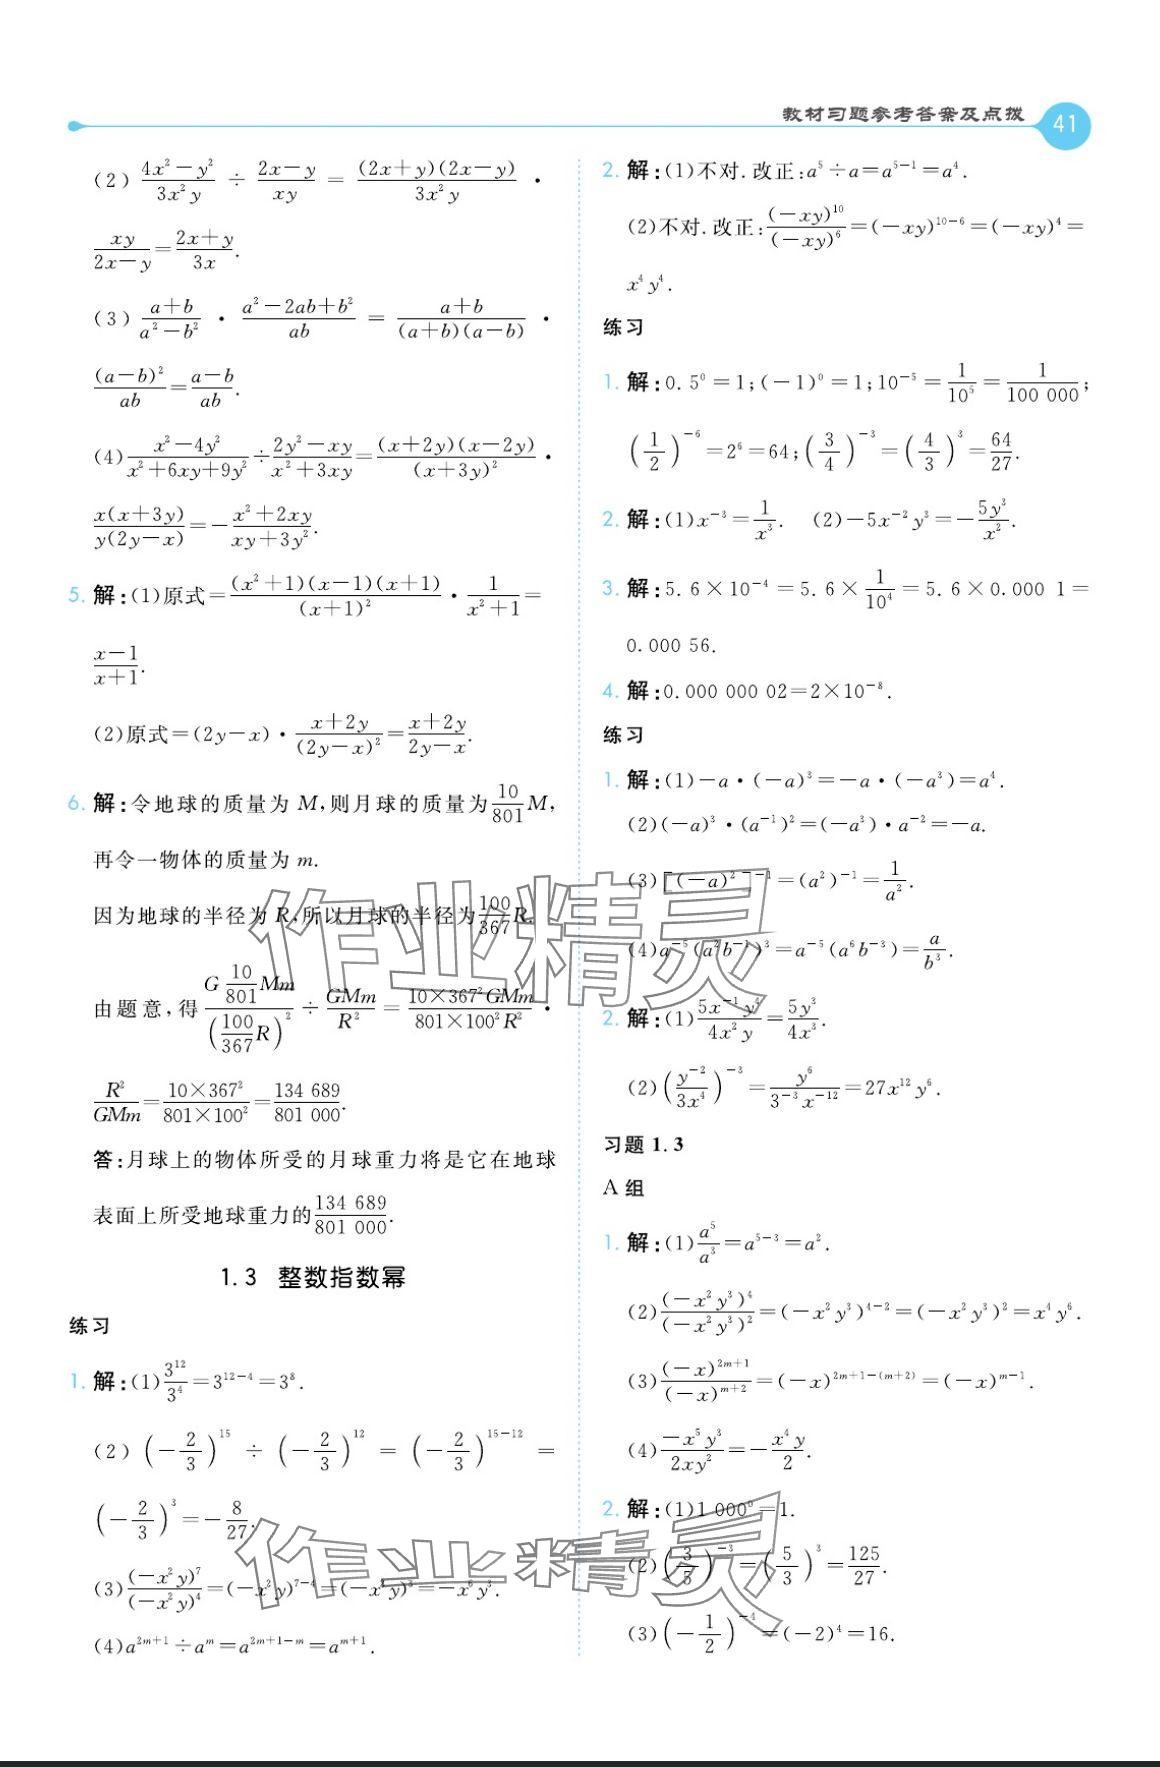 教材习题参考答案及点拨 41
(2) \frac{4x²-y²}{3x²y} ÷ \frac{2x-y}{xy} = \frac{(2x+y)(2x-y)}{3x²y} ·
\frac{xy}{2x-y} = \frac{2x+y}{3x}.
(3) \frac{a+b}{a²-b²} · \frac{a²-2ab+b²}{ab} = \frac{a+b}{(a+b)(a-b)} ·
\frac{(a-b)²}{ab} = \frac{a-b}{ab}.
(4) \frac{x²-4y²}{x²+6xy+9y²} ÷ \frac{2y²-xy}{x²+3xy} = \frac{(x+2y)(x-2y)}{(x+3y)²} ·
\frac{x(x+3y)}{y(2y-x)} = -\frac{x²+2xy}{xy+3y²}.
5. 解:(1)原式= \frac{(x²+1)(x-1)(x+1)}{(x+1)²} · \frac{1}{x²+1} =
\frac{x-1}{x+1}.
(2)原式=(2y-x)· \frac{x+2y}{(2y-x)²} = \frac{x+2y}{2y-x}.
6. 解:令地球的质量为 M,则月球的质量为\frac{10}{801}M,
再令一物体的质量为 m.
因为地球的半径为 R,所以月球的半径为\frac{100}{367}R.
由题意,得 \frac{G\frac{10}{801}Mm}{(\frac{100}{367}R)²} ÷ \frac{GMm}{R²} = \frac{10×367²GMm}{801×100²R²} ·
\frac{R²}{GMm} = \frac{10×367²}{801×100²} = \frac{134 689}{801 000}.
答:月球上的物体所受的月球重力将是它在地球
表面上所受地球重力的\frac{134 689}{801 000}.
1.3 整数指数幂
练习
1. 解:(1)\frac{3^{12}}{3^4}=3^{12-4}=3^8.
(2) (-\frac{2}{3})^{15} ÷ (-\frac{2}{3})^{12} = (-\frac{2}{3})^{15-12} =
(-\frac{2}{3})^3 = -\frac{8}{27}.
(3)\frac{(-x²y)^7}{(-x²y)^4}=(-x²y)^{7-4}=(-x²y)^3=-x^6y^3.
(4)a^{2m+1}÷a^m=a^{2m+1-m}=a^{m+1}.
2. 解:(1)不对.改正:a^5÷a=a^{5-1}=a^4.
(2)不对.改正:\frac{(-xy)^{10}}{(-xy)^6}=(-xy)^{10-6}=(-xy)^4=
x^4y^4.
练习
1. 解:0.5^0=1;(-1)^0=1;10^{-5}=\frac{1}{10^5}=\frac{1}{100 000};
(\frac{1}{2})^{-6}=2^6=64;(\frac{3}{4})^{-3}=(\frac{4}{3})^3=\frac{64}{27}.
2. 解:(1)x^{-3}=\frac{1}{x^3}. (2)-5x^{-2}y^3=-\frac{5y^3}{x²}.
3. 解:5.6×10^{-4}=5.6×\frac{1}{10^4}=5.6×0.000 1=
0.000 56.
4. 解:0.000 000 02=2×10^{-8}.
练习
1. 解:(1)-a·(-a)^3=-a·(-a^3)=a^4.
(2)(-a)^3·(a^{-1})^2=(-a^3)·a^{-2}=-a.
(3)[(-a)^2]^{-1}=(a^2)^{-1}=\frac{1}{a²}.
(4)a^{-5}(a²b^{-1})^3=a^{-5}(a^6b^{-3})=\frac{a}{b^3}.
2. 解:(1)\frac{5x^{-1}y^4}{4x²y}=\frac{5y^3}{4x^3}.
(2)(\frac{y^{-2}}{3x^4})^{-3}=\frac{y^6}{3^{-3}x^{-12}}=27x^{12}y^6.
习题 1.3
A 组
1. 解:(1)\frac{a^5}{a^3}=a^{5-3}=a².
(2)\frac{(-x²y³)^4}{(-x²y³)^2}=(-x²y³)^{4-2}=(-x²y³)²=x^4y^6.
(3)\frac{(-x)^{2m+1}}{(-x)^{m+2}}=(-x)^{2m+1-(m+2)}=(-x)^{m-1}.
(4)\frac{-x^5y^3}{2xy²}=-\frac{x^4y}{2}.
2. 解:(1)1 000^0=1.
(2)(\frac{3}{5})^{-3}=(\frac{5}{3})^3=\frac{125}{27}.
(3)(-\frac{1}{2})^{-4}=(-2)^4=16.
作业精灵
作业精灵